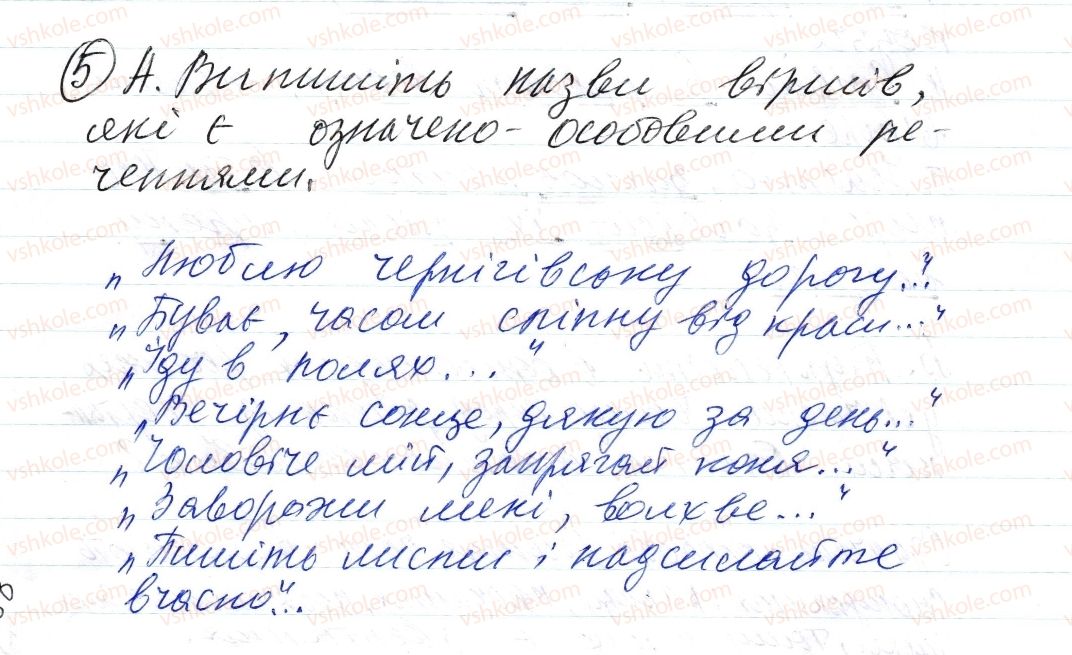 5 А. Випишіть назви віршів,
які є означено-особовими ре-
ченнями.
„Люблю чернігівську дорогу..."
„Буває, часом сліпну від краси..."
„Їду в полях..."
„Вечірнє сонце, дякую за день..."
„Чоловіче мій, запрягай коня..."
„Заворожи мені, волхве..."
„Пишіть листи і надсилайте
вчасно"...